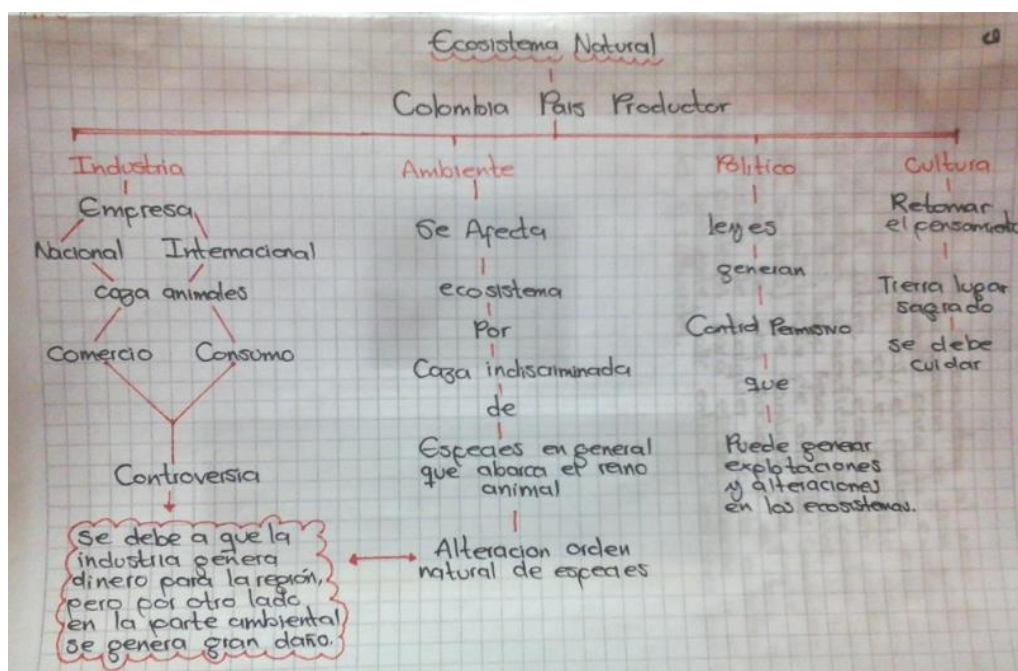 Ecosistema Natural
Colombia Pais Productor
Industria
Empresa
Nacional Internacional
caza animales
Comercio Consumo
Controversia
se debe a que la
industria genera
dinero para la región,
pero por otro lado
en la parte ambiental
se genera gran daño.
Ambiente
Se Afecta
ecosistema
Por
Caza indiscriminada
de
Especies en general
que abarca el reino
animal
Alteracion orden
natural de especies
Politico
leyes
generan
Control Permisivo
que
Puede generar
explotaciones
y alteraciones
en los ecosistemas.
Cultura
Retomar
el pensamiento
Tierra lugar
sagrado
se debe
cuidar